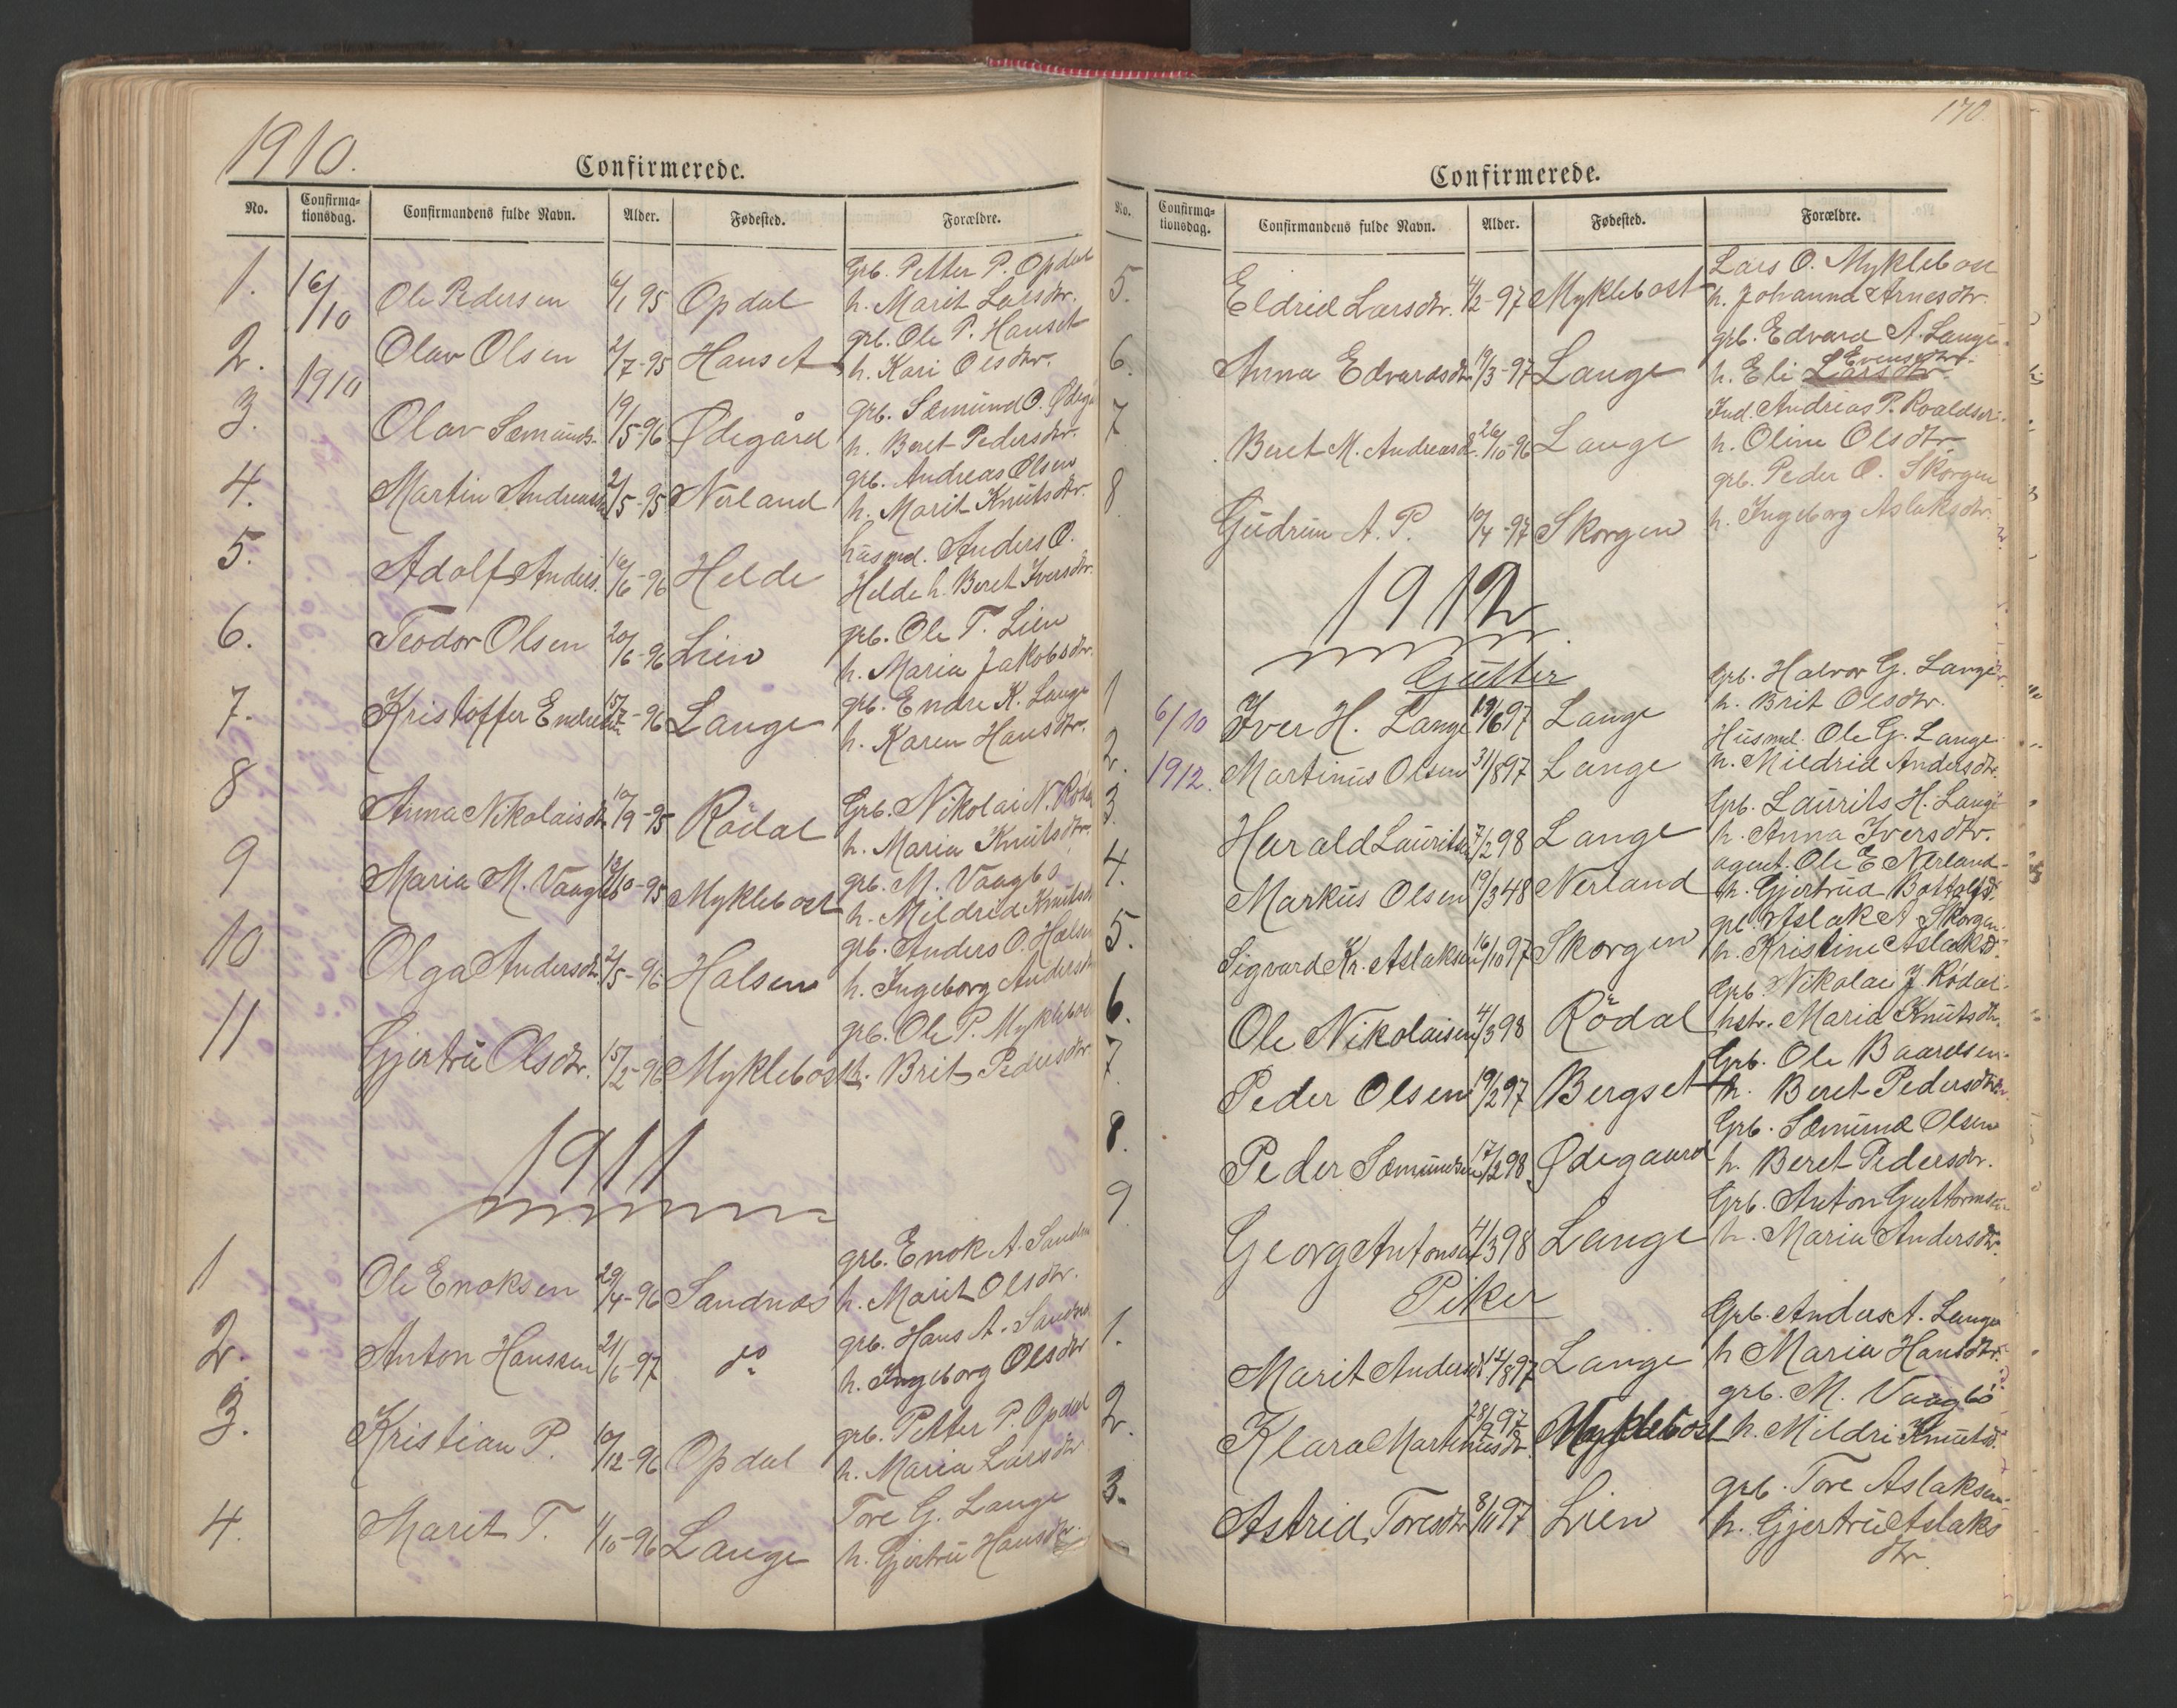 1910.
Confirmerede.
No. Confirma-tionsdag. Confirmandens fulde Navn. Alder. Fødested. Forældre.
1. 16/10 Ole Pedersen 6/1 95 Opdal Grb. Petter P. Opdal
h. Marit Larsdtr.
2. 1910 Olav Olsen 2/7-95 Hanset grb. Ole P. Hanset
h. Kari Olsdtr.
3. Olav Sæmunds. 19/5-96 Ødegård grb. Sæmund O. Ødeg
h. Beret Pedersdtr.
4. Martin Andreassen 2/5-95 Nerland grb. Andreas Olsen
h. Marit Knutsdtr.
5. Adolf Anders. 16/6-96 Helde husmd. Anders O.
Helde h. Beret Iversdtr.
6. Teodor Olsen 20/6-96 Lien grb. Ole T. Lien
h. Maria Jakobsdtr.
7. Kristoffer Endresen 15/7-96 Lange grb. Endre K. Lange
h. Karen Hansdtr.
8 Anna Nikolaisdtr. 10/9-95 Rödal Grb. Nikolai N. Röda
h. Maria Knutsdtr.
9 Maria M. Vaagbö 18/10-95 Myklebost grb. M. Vaagbö
h. Mildrid Knutsd
10 Olga Andersdtr. 2/5-96 Halsen grb. Anders O. Halsen
h. Ingeborg Andersdtr
11 Gjertru Olsdtr. 15/2-96 Myklebost grb. Ole P. Myklebos
h. Brit Pedersdtr
1911
1 Ole Enoksen 29/4-96 Sandnæs grb. Enok A. Sandn
h. Marit Olsdtr.
2. Anton Hanssen 21/6-97 do grb. Hans A. Sandnæ
h. Ingeborg Olsdtr
3. Kristian P. 10/12-96 Opdal grb. Petter P. Opdal
h. Maria Larsdtr
4. Marit T. 1/10-96 Lange Tore G. Lange
h. Gjertru Hansdtr.
170.
Confirmerede.
No. Confirma-tionsdag. Confirmandens fulde Navn. Alder. Fødested. Forældre.
5. Eldrid Larsdtr. 4/2-97 Myklebost Lars O. Myklebost
h. Johanna Arnesdtr.
6. Anna Edvardsdtr. 19/3-97 Lange grb. Edvard A. Lange.
Evensdtr.
h. Eli Larsdtr
7 Beret M. Andreasd. 26/10-96 Lange Ind. Andreas P. Roaldsen.
h. Oline Olsdtr.
8 Gudrun A. P. 10/4-97 Skorgen grb. Peder O. Skorgen
h. Ingeborg Aslaksdtr.
1912
Gutter
1 6/10 Iver H. Lange 19/6 97 Lange Grb. Halvor G. Lange
h. Brit Olsdtr.
2. 1912. Martinus Olsen 31/8 97 Lange Husmd. Ole G. Lange
h. Mildrid Andersdtr.
3. Harald Lauritsen 7/2 98 Lange Grb. Laurits H. Lange
h. Anna Iversdtr.
4. Markus Olsen 19/3 48 Nerland agent. Ole E Nerland
h. Gjertrud Bottolfsd.
5. Sigvard Kr. Aslaksen 16/10 97 Skorgen grb. Aslak A Skorgen.
h. Kristine Aslaksd.
6. Ole Nikolaisen 4/3 98 Rödal Grb. Nikolai J. Rödal.
hstr. Maria Knutsdtr.
7. Peder Olsen 19/2 97 Bergset Grb. Ole Baardsen.
h. Beret Pedersdtr
8. Peder Sæmundsen 17/2 98 Ødegaard Grb. Sæmund Olsen
h. Beret Pedersdtr.
9 Georg Antonsen 4/3 98 Lange Grb. Anton Guttormsen
h. Maria Andersdtr.
Piker
1. Marit Andersdt. 12/8 97 Lange Grb. Anders A. Lange
h Maria Hansdtr.
2. Klara Martinusdtr. 28/9 97 Myklebost grb. M. Vaagbö
h. Mildri Knutsd.
3. Astrid Toresdtr 8/10 97 Lien grb. Tore Aslaksen.
h. Gjertru Aslaks
dtr.